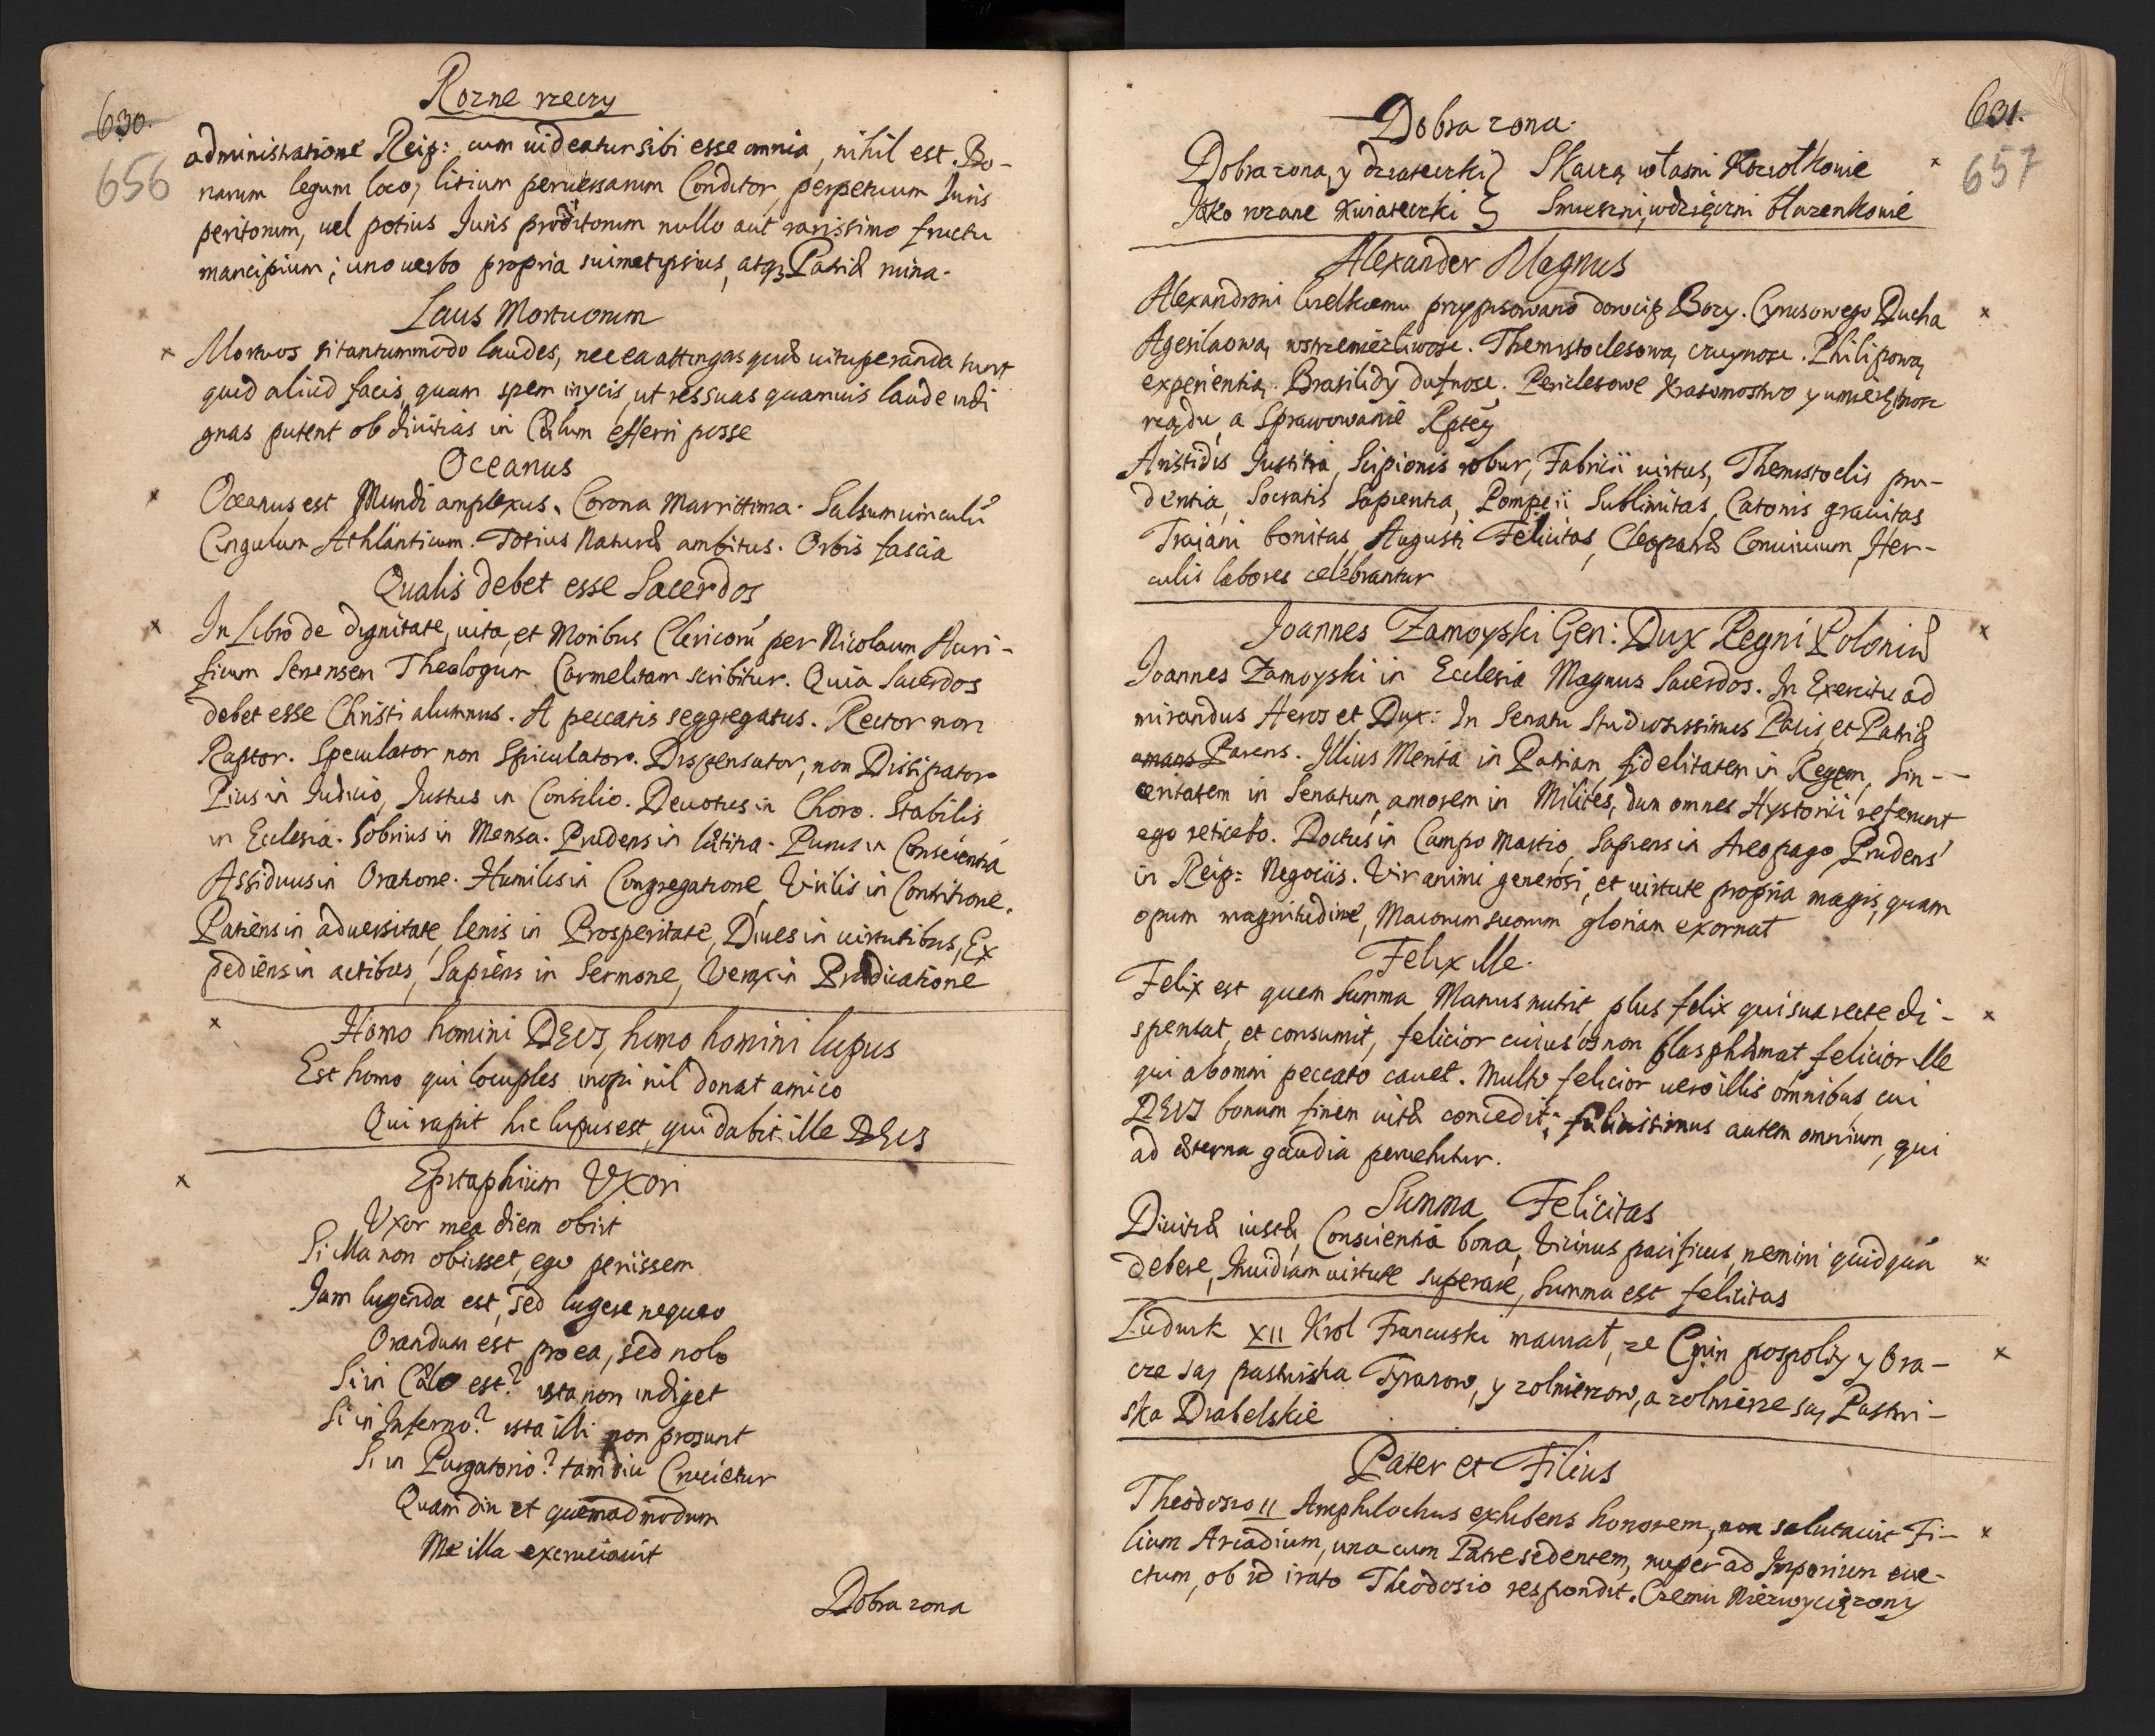 Rozne rzeczy
630.
656
administratione Reip: cum uideatur sibi esse omnia, nihil est. Bo-
narum legum loco, litium peruersarum Conditor, perpetuum Iuris
peritorum, uel potius Iuris proditorum nullo aut rarissimo fructu
mancipium; uno uerbo propria suimetipsius, atq; Patriæ ruina.
Laus Mortuorum
Mortuos si tantummodo laudes, nec ea attingas quæ uituperanda sunt
quid aliud facis, quam spem inycis, ut res suas quamuis laude indi
gnas putent ob diuitias in Cælum efferri posse
Oceanus
Oceanus est Mundi amplexus. Corona Marrittima. Salsum uinculũ
Cingulum Athlanticum. Totius Naturæ ambitus. Orbis fascia
Qualis debet esse Sacerdos
In Libro de dignitate, uita, et Moribus Clericorũ per Nicolaum Auri-
ficum Senensem Theologum Carmelitam scribitur. Quia Sacerdos
debet esse Christi alumnus. A peccatis seggregatus. Rector non
Raptor. Speculator non Spiculator. Dispensator, non Dissipator
Pius in Iudicio, Iustus in Consilio. Deuotus in Choro. Stabilis
in Ecclesia. Sobrius in Mensa. Prudens in lætitia. Purus in Conscientia
Assiduus in Oratione. Humilis in Congregatione, Virilis in Contritione.
Patiens in aduersitate, lenis in Prosperitate, Diues in uirtutibus, Ex
pediens in actibus, Sapiens in Sermone, Verax in Prædicatione
Homo homini DEUS, homo homini lupus
Est homo qui locuples inopi nil donat amico
Qui rapit hic lupus est, qui dabit ille DEUS
Epitaphium Vxori
Vxor mea diem obiit
Si illa non obiisset, ego periissem
Iam lugenda est, sed lugere nequeo
Orandum est pro ea, sed nolo
Si in Cælo est? ista non indiget
Si in Inferno? ista illi non prosunt
Si in Purgatorio? tam diu Crucietur
Quam diu et quemadmodum
Me illa excruciauit
Dobra zona
Dobra zona.
631.
657
Dobra zona, y dziateczki Skaczą własni Kozołkowie
Jako rozane kwiateczki Smieszni, wdzięczni błazenkowie
Alexander Magnus
Alexandroui Wielkiemu przypisowano dowcip Bozy. Cyrusowego Ducha
Agesilaową wstrzemięźliwosc. Themistoclesową czuynosc. Philipową
experientią. Brasilidy dufnosc. Periclesowe Krasomostwo y umieiętnosc
rządu, a Sprawowanie Rptey
Aristidis Iustitia, Scipionis robur, Fabricii uirtus, Themistoclis pru-
dentia, Socratis Sapientia, Pompeii Sublimitas, Catonis grauitas
Traiani bonitas, Augusti Felicitas, Cleopatræ Conuiuium, Her-
culis labores celebrantur
Joannes Zamoyski Gen: Dux Regni Poloniæ
Joannes Zamoyski in Ecclesia Magnus Sacerdos. In Exercitu ad
mirandus Heros et Dux: In Senatu Studiosissimus Pacis et Patriæ
amans Parens. Illius Merita in Patriam, fidelitatem in Regem, Sin-
ceritatem in Senatum, amorem in Milites, dum omnes Hystorici referunt,
ego reticebo. Doctus in Campo Martio, Sapiens in Areopago, Prudens
in Reip: Negociis. Vir animi generosi, et uirtute propria magis, quam
opum magnitudine, Maiorum suorum gloriam exornat
Felix ille.
Felix est quem Summa Manus nutrit, plus felix qui sua recte di-
spensat, et consumit, felicior cuius os non blasphæmat felicior ille
qui ab omni peccato cauet. Multo felicior uero illis omnibus, cui
DEUS bonum finem uitæ concedit; felicissimus autem omnium, qui
ad æterna gaudia peruehitur.
Summa Felicitas
Diuitiæ iustæ, Conscientia bona, Vicinus pacificus, nemini quidquã
debere, Inuidiam uirtute superare, Summa est felicitas
Ludwik XII Krol Francuski mawiał, ze Gmin pospolity y Ora-
cze są pastwiska Tyranow, y zolnierzow, a zolnierze są Pastwi-
ska Diabelskie
Pater et Filius
Theodosio II Amphilochus exhibens honorem, non salutauit Fi-
lium Arcadium, una cum Patre sedentem, nuper ad Imperium eue-
ctum, ob id irato Theodosio respondit. Czemu Niezwyciężony